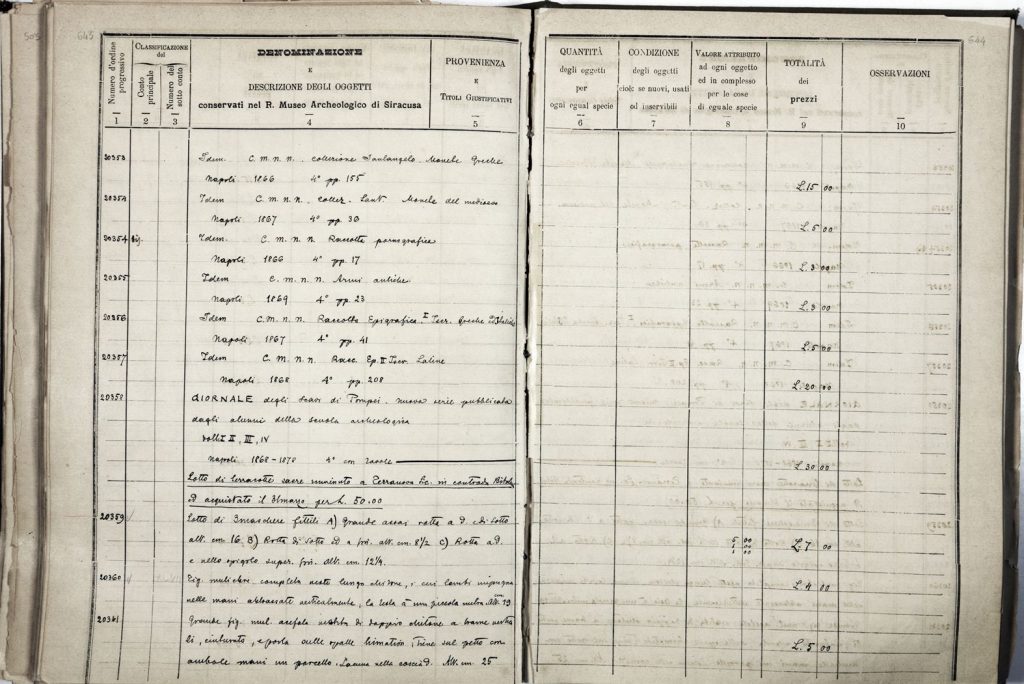 505
643
Numero d'ordine progressivo
CLASSIFICAZIONE del
Conto principale
Numero del sotto conto
DENOMINAZIONE
E
DESCRIZIONE DEGLI OGGETTI
conservati nel R. Museo Archeologico di Siracusa
PROVENIENZA
E
TITOLI GIUSTIFICATIVI
1 2 3 4 5
20353 Idem C. m. n. n. collezione Santangelo Monete Greche
Napoli 1866 4° pp. 155
Idem C. m. n. n. collez. Sant. Monete del medioevo
Napoli 1867 4° pp. 30
20354 Idem. C. m. n. n. Raccolta pornografica
Napoli 1866 4° pp. 17
20355 Idem C. m. n. n. Armi antiche
Napoli 1869 4° pp. 23
20356 Idem C. m. n. n. Raccolta Epigrafica. I Iscr. Greche ed Italiche
Napoli 1867 4° pp. 41
20357 Idem C. m. n. n. Racc. Ep. II Iscr. Latine
Napoli 1868 4° pp. 208
20358 GIORNALE degli scavi di Pompei. nuova serie pubblicata
dagli alunni della scuola archeologica
voll. I II, III, IV
Napoli 1868-1878 4° con tavole
Lotto di terracotte sacre rinvenute a Terranova Sc. in contrada
ed acquistato il marzo per L. 50.00
20359 Lotto di 3 maschere fittili A) Grande assai rotta a d. e di sotto
alt. cm. 16. B) Rotta di sotto ed a sin. alt. cm. 8½ C) Rotta a d.
e nello spigolo super. sin. alt. cm. 12½.
20360 Fig. muliebre completa veste lungo chitone, i cui lembi impugna
nelle mani abbassate verticalmente, la testa à una piccola mitra Alt. cm 19
20361 Grande fig. mul. acefala vestita di doppio chitone a trame verti
li, cinturato, e porta sulle spalle himation, tiene sul petto con
ambole mani un porcello. Lacuna nella coscia d. Alt. cm. 25
644
QUANTITÀ
degli oggetti
per
ogni egual specie
CONDIZIONE
degli oggetti
cioè: se nuovi, usati
od inservibili
VALORE ATTRIBUITO
ad ogni oggetto
ed in complesso
per le cose
di eguale specie
TOTALITÀ
dei
prezzi
OSSERVAZIONI
6 7 8 9 10
L. 15 00
L. 5 00
L. 3 00
L. 3 00
L. 5 00
L. 20 00
L. 30 00
5 00
1 00
1 00
L. 7 00
L. 4 00
L. 5 00